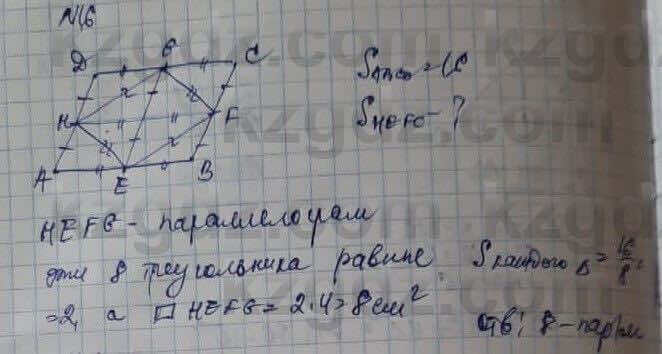 N16
D G C
H F
A E B
S ABCD = 16
S HEFG - ?
HEFG - параллелограм
все 8 треугольника равные. S каждого Δ = 16/8 =
= 2, а ▱ HEFG = 2·4 = 8 см²
Отв: 8 - пар/м
kzgdz.com